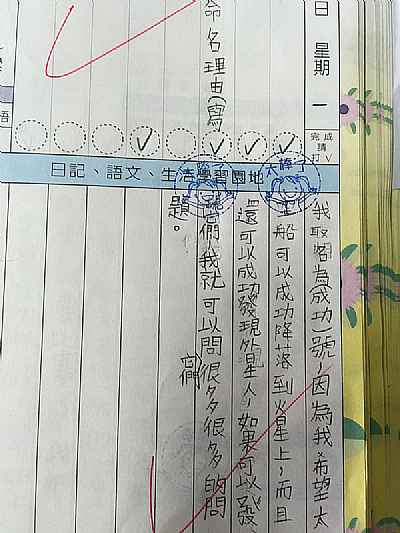 日 星期 一
完成請打V
命名理由(寫
日記、語文、生活學習園地
太棒了
我取名為成功1號,因為我希望太
船可以成功降落到火星上,而且
還可以成功發現外星人,如果可以發
它們,我就可以問很多很多的問
它們
題。